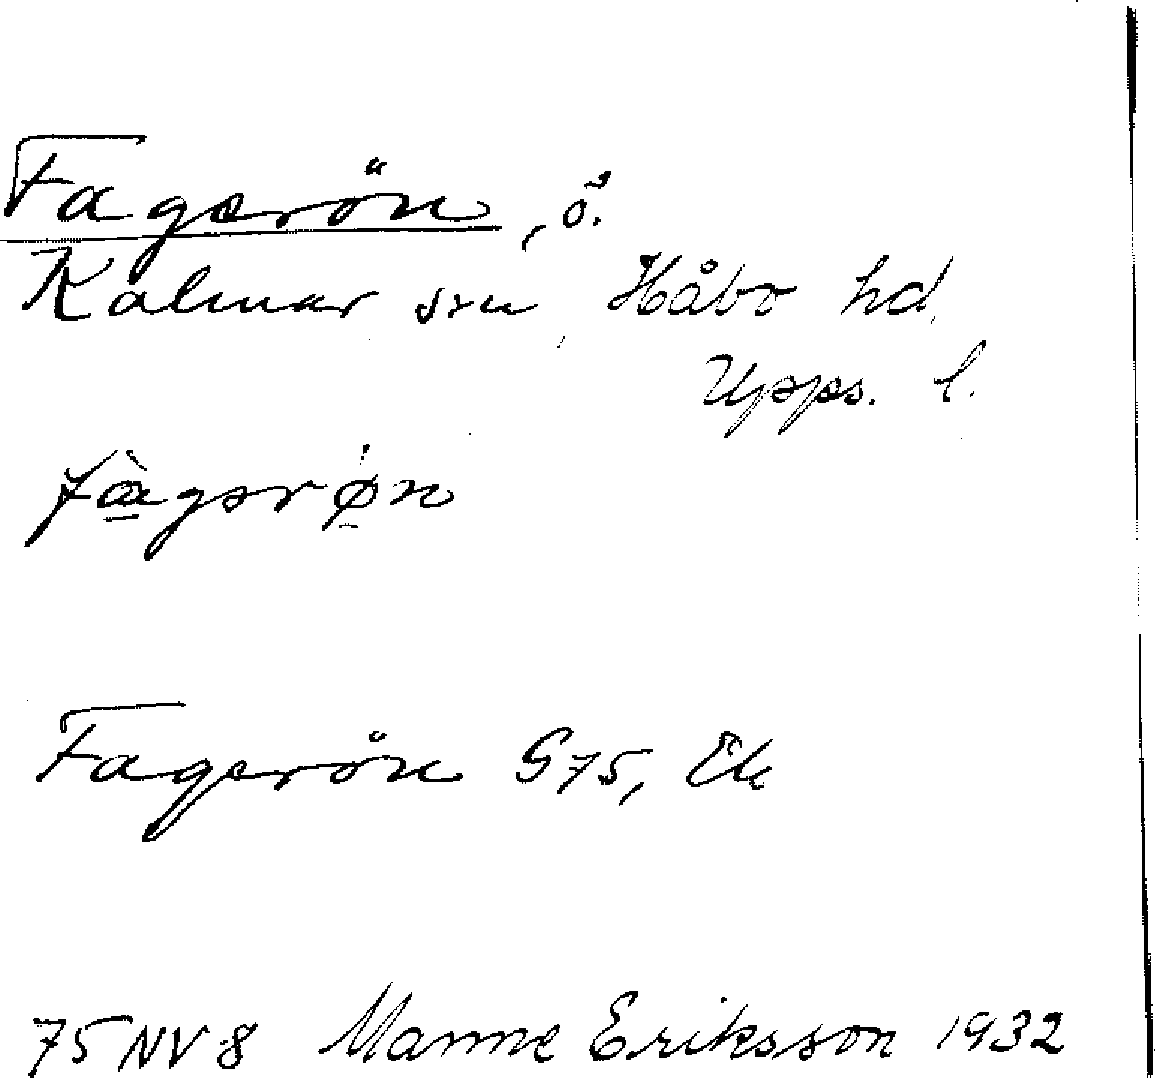 Fagerön, ö.
Kalmar sn Håbo hd,
Upps. l.
fàgərø̱n
Fagerön G75, Ek
75 NV 8 Manne Eriksson 1932